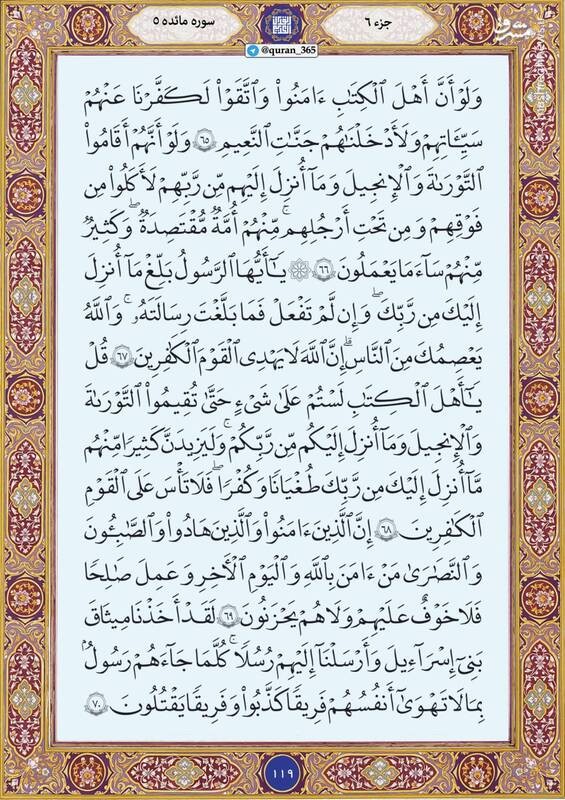 جزء ۶
سوره مائده ۵
@quran_365
وَلَوْ أَنَّ أَهْلَ ٱلْكِتَٰبِ ءَامَنُوا۟ وَٱتَّقَوْا۟ لَكَفَّرْنَا عَنْهُمْ
سَيِّـَٔاتِهِمْ وَلَأَدْخَلْنَٰهُمْ جَنَّٰتِ ٱلنَّعِيمِ ۶۵ وَلَوْ أَنَّهُمْ أَقَامُوا۟
ٱلتَّوْرَىٰةَ وَٱلْإِنجِيلَ وَمَآ أُنزِلَ إِلَيْهِم مِّن رَّبِّهِمْ لَأَكَلُوا۟ مِن
فَوْقِهِمْ وَمِن تَحْتِ أَرْجُلِهِم ۚ مِّنْهُمْ أُمَّةٌ مُّقْتَصِدَةٌ ۖ وَكَثِيرٌ
مِّنْهُمْ سَآءَ مَا يَعْمَلُونَ ۶۶ ۞ يَٰٓأَيُّهَا ٱلرَّسُولُ بَلِّغْ مَآ أُنزِلَ
إِلَيْكَ مِن رَّبِّكَ ۖ وَإِن لَّمْ تَفْعَلْ فَمَا بَلَّغْتَ رِسَالَتَهُۥ ۚ وَٱللَّهُ
يَعْصِمُكَ مِنَ ٱلنَّاسِ ۗ إِنَّ ٱللَّهَ لَا يَهْدِى ٱلْقَوْمَ ٱلْكَٰفِرِينَ ۶۷ قُلْ
يَٰٓأَهْلَ ٱلْكِتَٰبِ لَسْتُمْ عَلَىٰ شَىْءٍ حَتَّىٰ تُقِيمُوا۟ ٱلتَّوْرَىٰةَ
وَٱلْإِنجِيلَ وَمَآ أُنزِلَ إِلَيْكُم مِّن رَّبِّكُمْ ۗ وَلَيَزِيدَنَّ كَثِيرًا مِّنْهُم
مَّآ أُنزِلَ إِلَيْكَ مِن رَّبِّكَ طُغْيَٰنًا وَكُفْرًا ۖ فَلَا تَأْسَ عَلَى ٱلْقَوْمِ
ٱلْكَٰفِرِينَ ۶۸ إِنَّ ٱلَّذِينَ ءَامَنُوا۟ وَٱلَّذِينَ هَادُوا۟ وَٱلصَّٰبِـُٔونَ
وَٱلنَّصَٰرَىٰ مَنْ ءَامَنَ بِٱللَّهِ وَٱلْيَوْمِ ٱلْأَخِرِ وَعَمِلَ صَٰلِحًا
فَلَا خَوْفٌ عَلَيْهِمْ وَلَا هُمْ يَحْزَنُونَ ۶۹ لَقَدْ أَخَذْنَا مِيثَٰقَ
بَنِىٓ إِسْرَٰٓءِيلَ وَأَرْسَلْنَآ إِلَيْهِمْ رُسُلًا ۖ كُلَّمَا جَآءَهُمْ رَسُولٌۢ
بِمَا لَا تَهْوَىٰٓ أَنفُسُهُمْ فَرِيقًا كَذَّبُوا۟ وَفَرِيقًا يَقْتُلُونَ ۷۰
۱۱۹